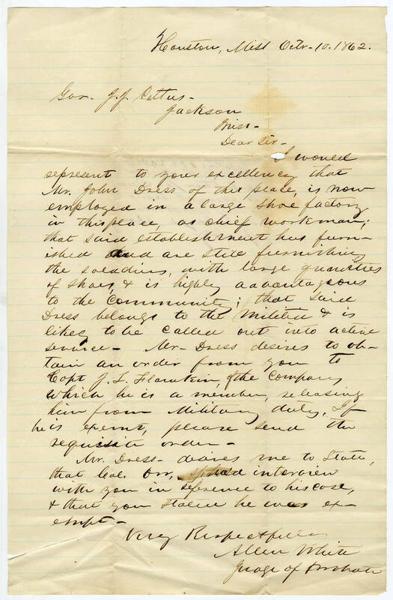 Houston, Miss Octr. 10. 1862.
Gov. J. J. Pettus-
Jackson
Miss-
Dear Sir-
I would
represent to your excellency that
Mr. John Dress of this place, is now
employed in a large Shoe factory
in this place, as chief workman;
that said establishment has furn-
ished and are still furnishing
the soldiers, with large quantities
of Shoes & is highly advantageous
to the Community; that said
Dress belongs to the Militia & is
likely to be called out into active
service- Mr. Dress desires to ob-
tain an order from you to
Capt J. L. of the Company
which he is a member, releasing
him from Military duty, If
he is exempt, please send the
requisite order-
Mr. Dress- desires me to State,
that Col. had interview
with you in reference to his case,
& that you Stated he was ex-
empt-
Very Respectfully
Allen White
Judge of Probate